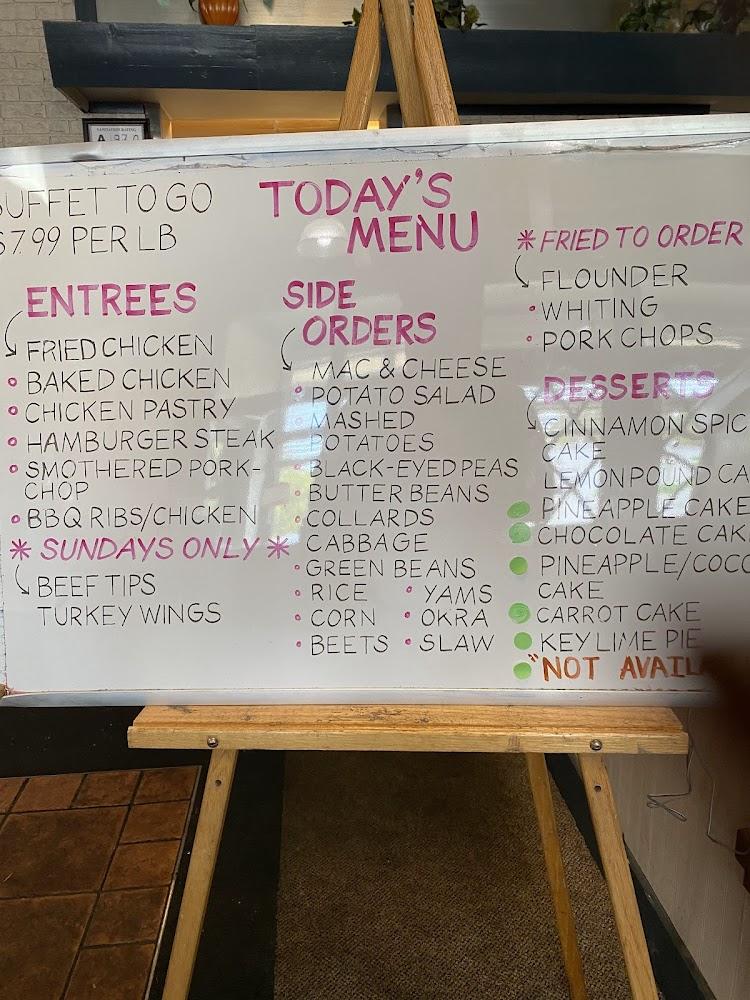 SANITATION RATING
A 97.0
BUFFET TO GO
$7.99 PER LB
TODAY'S
MENU
ENTREES
FRIED CHICKEN
• BAKED CHICKEN
• CHICKEN PASTRY
• HAMBURGER STEAK
• SMOTHERED PORK-
CHOP
• BBQ RIBS/CHICKEN
* SUNDAYS ONLY *
BEEF TIPS
TURKEY WINGS
SIDE
ORDERS
MAC & CHEESE
• POTATO SALAD
• MASHED
POTATOES
• BLACK-EYED PEAS
• BUTTER BEANS
• COLLARDS
CABBAGE
• GREEN BEANS
• RICE • YAMS
• CORN • OKRA
• BEETS • SLAW
* FRIED TO ORDER
FLOUNDER
• WHITING
• PORK CHOPS
DESSERTS
CINNAMON SPIC
CAKE
LEMON POUND CA
PINEAPPLE CAKE
CHOCOLATE CAK
PINEAPPLE/COCO
CAKE
CARROT CAKE
KEY LIME PIE
"NOT AVAIL